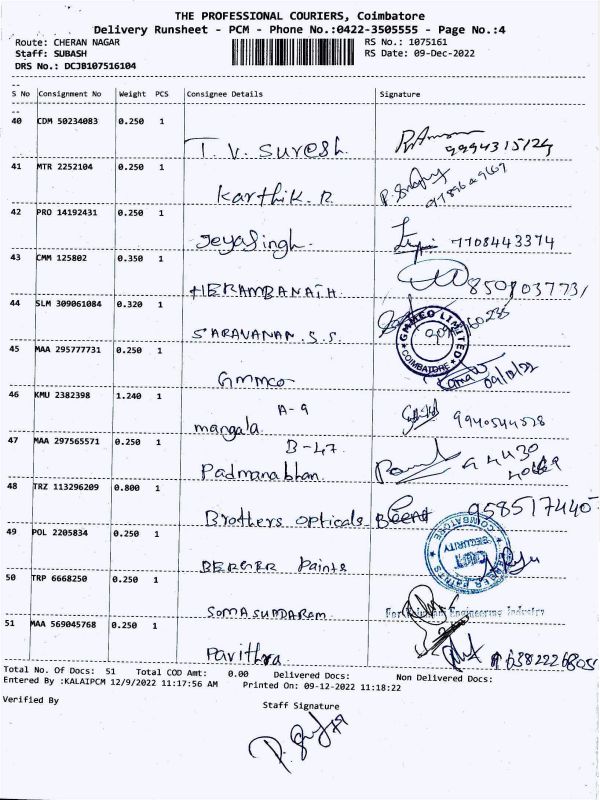 THE PROFESSIONAL COURIERS, Coimbatore
Delivery Runsheet - PCM - Phone No.:0422-3505555 - Page No.:4
Route: CHERAN NAGAR RS No.: 1075161
Staff: SUBASH RS Date: 09-Dec-2022
DRS No.: DCJB107516104
S No Consignment No Weight PCS Consignee Details Signature
40 CDM 50234083 0.250 1
T. V. Suresh. 9994315124
41 MTR 2252104 0.250 1
Karthik. R
42 PRO 14192431 0.250 1
Jeyasingh. 7708443374
43 CMM 125802 0.350 1
HERAMBANATH
44 SLM 309061084 0.320 1
SARAVANAN. S. S.
GMMCO LIMITED
COIMBATORE
45 MAA 295777731 0.250 1
Gmmco 09/12/22
46 KMU 2382398 1.240 1
A-9
mangala
47 MAA 297565571 0.250 1
B-47
Padmanabhan
48 TRZ 113296209 0.800 1
Brothers opticals 9585174405
49 POL 2205834 0.250 1
BERGER Paints
BERGER PAINTS
COIMBATORE
SECURITY
50 TRP 6668250 0.250 1
SOMASUNDARAM
Engineering Industry
51 MAA 569045768 0.250 1
Pavithra 6382226805
Total No. Of Docs: 51 Total COD Amt: 0.00 Delivered Docs: Non Delivered Docs:
Entered By :KALAIPCM 12/9/2022 11:17:56 AM Printed On: 09-12-2022 11:18:22
Verified By Staff Signature